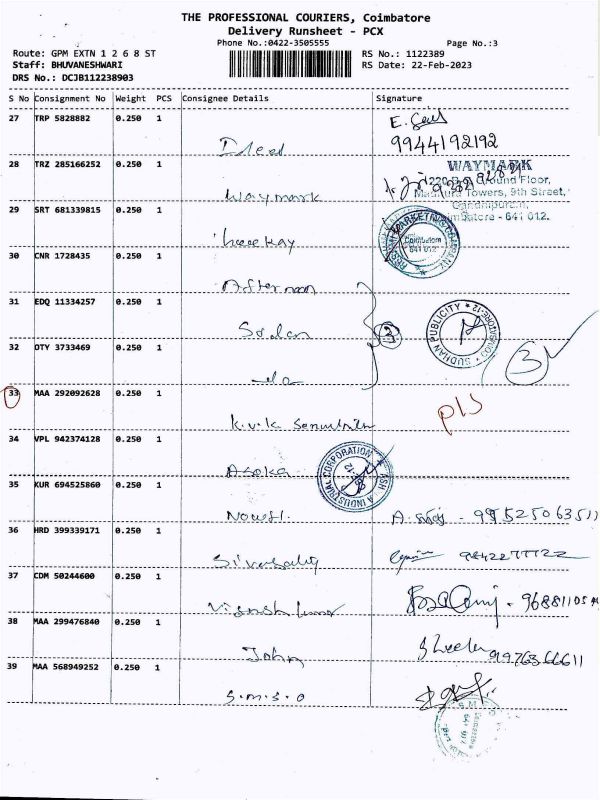 THE PROFESSIONAL COURIERS, Coimbatore
Delivery Runsheet - PCX
Phone No.:0422-3505555
Page No.:3
Route: GPM EXTN 1 2 6 8 ST
RS No.: 1122389
Staff: BHUVANESHWARI
RS Date: 22-Feb-2023
DRS No.: DCJB112238903
S No Consignment No Weight PCS Consignee Details Signature
27 TRP 5828882 0.250 1
9944192192
28 TRZ 285166252 0.250 1
WAYMARK
Ground Floor,
Towers, 9th Street,
Gandhipuram,
Coimbatore - 641 012.
Waymark
29 SRT 681339815 0.250 1
MARKETING COMPANY
Coimbatore
641 012
30 CNR 1728435 0.250 1
Afternoon
31 EDQ 11334257 0.250 1
SUDHAN PUBLICITY * COIMBATORE-12 *
Sudan
3
32 OTY 3733469 0.250 1
3
do
33 MAA 292092628 0.250 1
pls
K.V.K
34 VPL 942374128 0.250 1
INDUSTRIAL CORPORATION
Asoka
35 KUR 694525860 0.250 1
36 HRD 399339171 0.250 1
9842277722
37 CDM 50244600 0.250 1
38 MAA 299476840 0.250 1
John
39 MAA 568949252 0.250 1
S.M.S.O